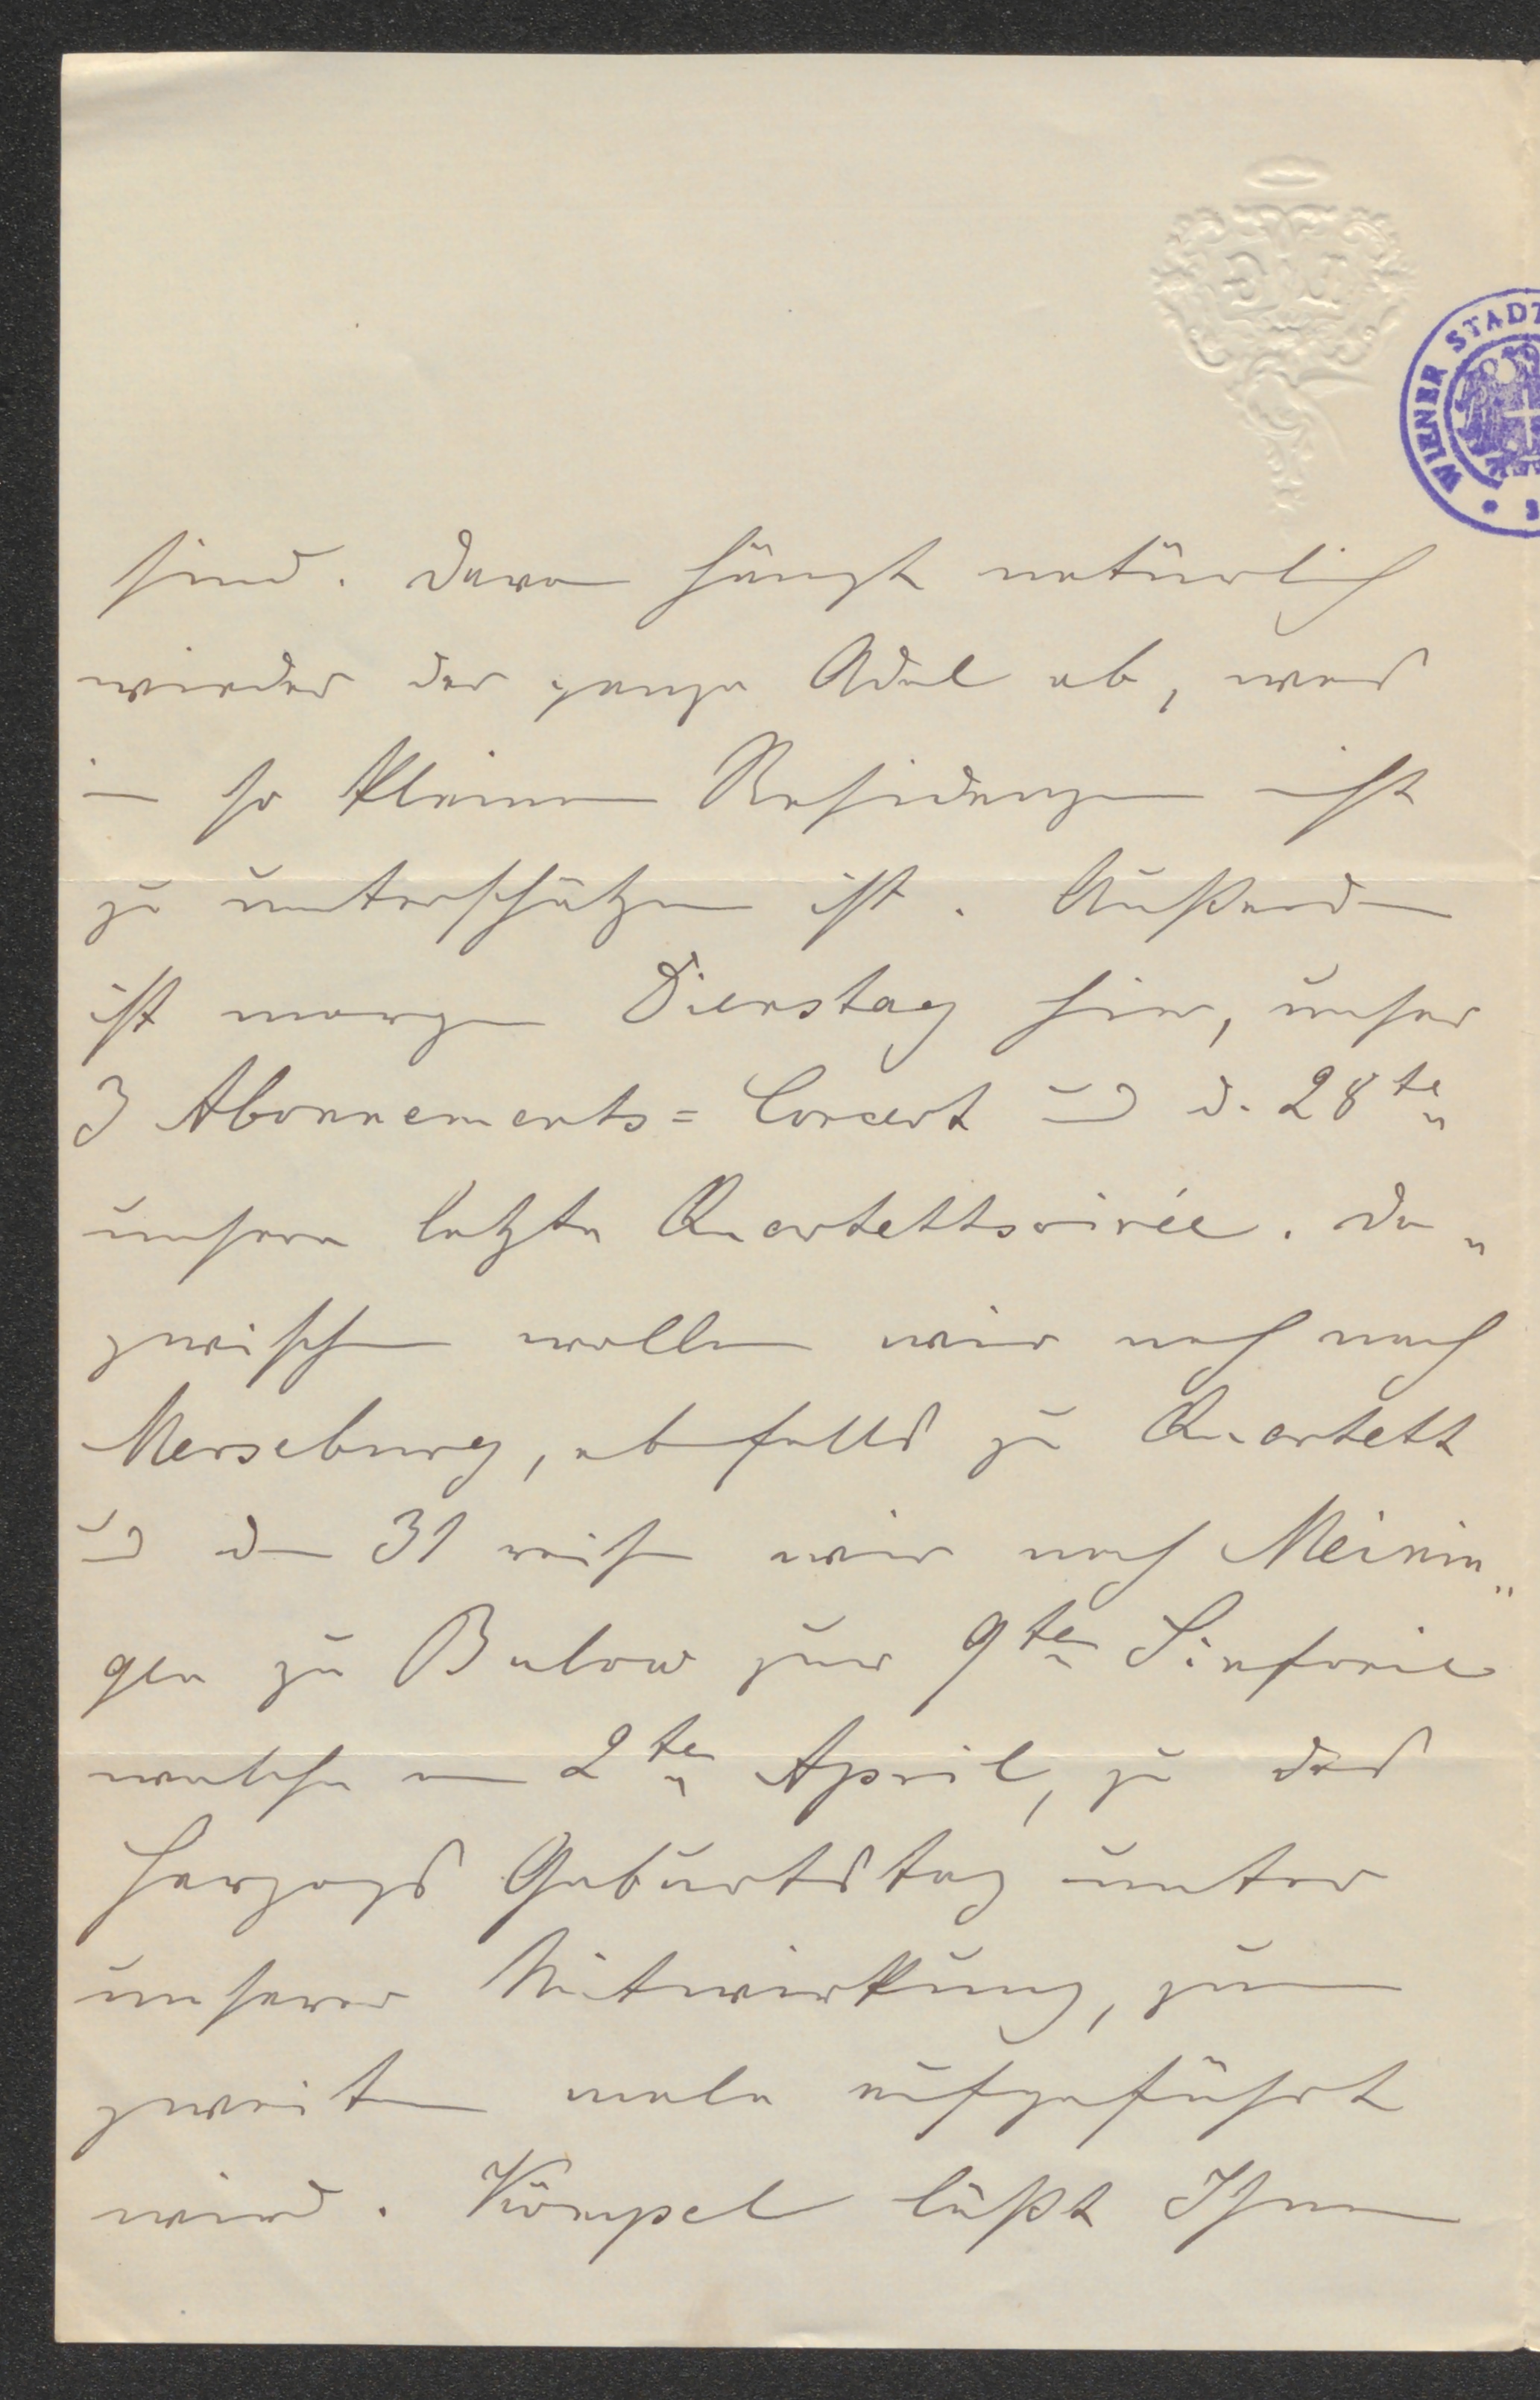 WIENER STADT
sind. Davon hängt natürlich
wieder der ganze Adel ab, was
in so kleinen Residenzen nicht
zu unterschätzen ist. Außerdem
ist morgen Dienstag hier, unser
3 Abonnements= Concert und d. 28ten
unsere letzte Quartettsoirée. Da„
zwischen wollen wir noch nach
Merseburg, ebenfalls zu Quartett
und den 31 reisen wir nach Meinin„
gen zu Bulow zur 9ten Sinfonie
welche am 2ten April, zu des
Herzogs Geburtstag unter
unserer Mitwirkung, zum
zweiten male aufgeführt
wird. Kömpel läßt Ihnen